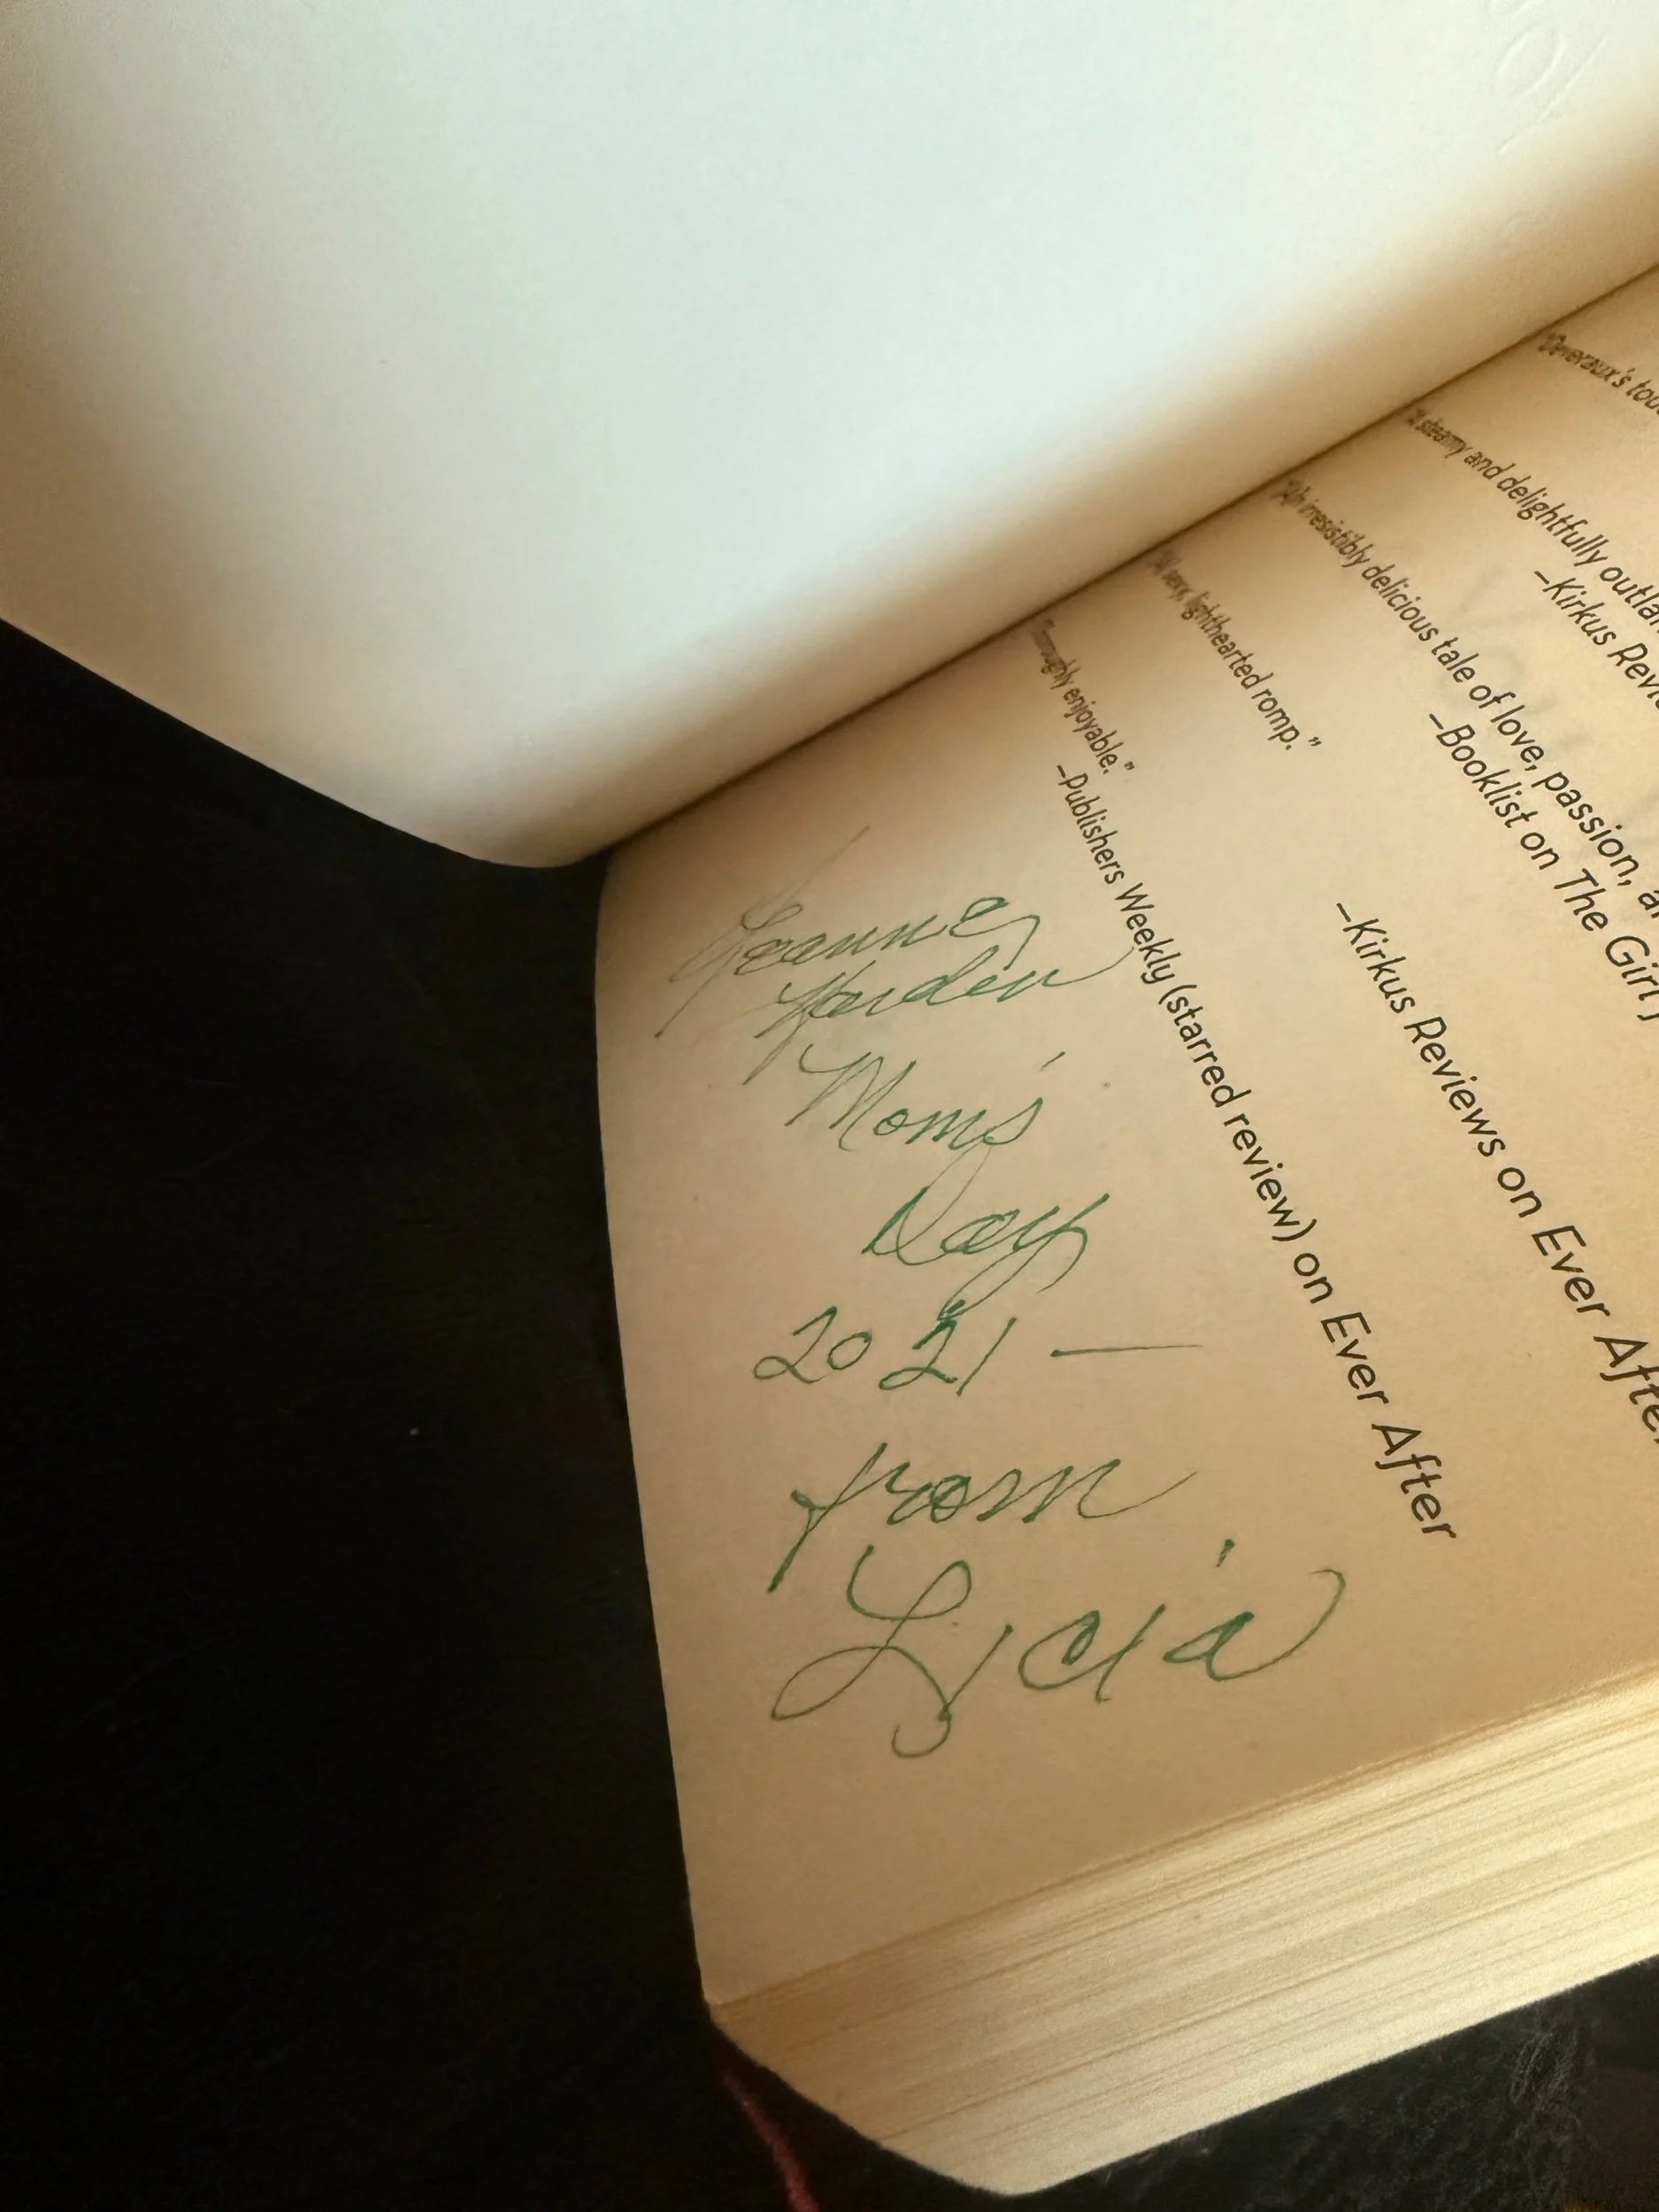 "Deveraux's tou
"A steamy and delightfully outlan
–Kirkus Revie
"[A]n irresistibly delicious tale of love, passion, a
–Booklist on The Girl
"A sexy, lighthearted romp."
–Kirkus Reviews on Ever After
"Thoroughly enjoyable."
–Publishers Weekly (starred review) on Ever After
Jeanne
Harden
Mom's
Day
2021 —
from
Lycia